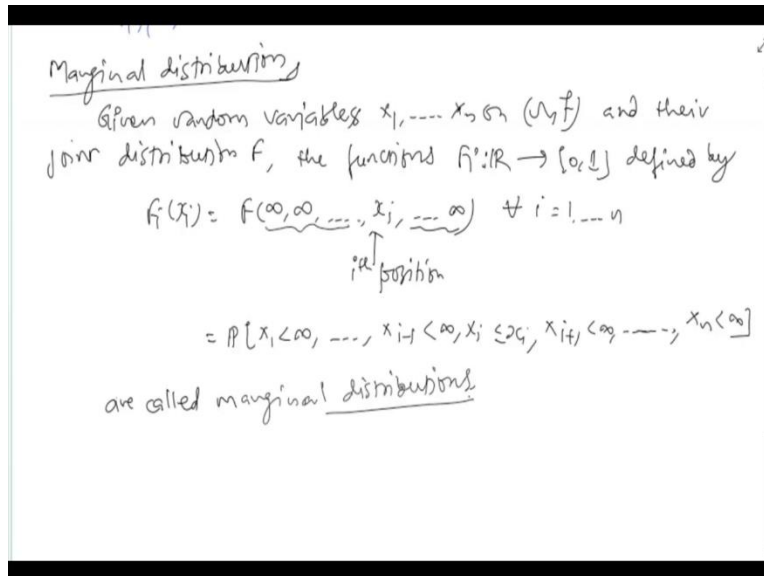 Marginal distributions
Given random variables X₁, .... Xₙ on (Ω, F) and their
joint distribution F, the functions Fᵢ: ℝ → [0,1] defined by
Fᵢ(xᵢ) = F(∞, ∞, ...., xᵢ, .... ∞) ∀ i = 1, .... n
iᵗʰ position
= P[X₁ < ∞, ...., Xᵢ₋₁ < ∞, Xᵢ ≤ xᵢ, Xᵢ₊₁ < ∞, ....., Xₙ < ∞]
are called marginal distributions.